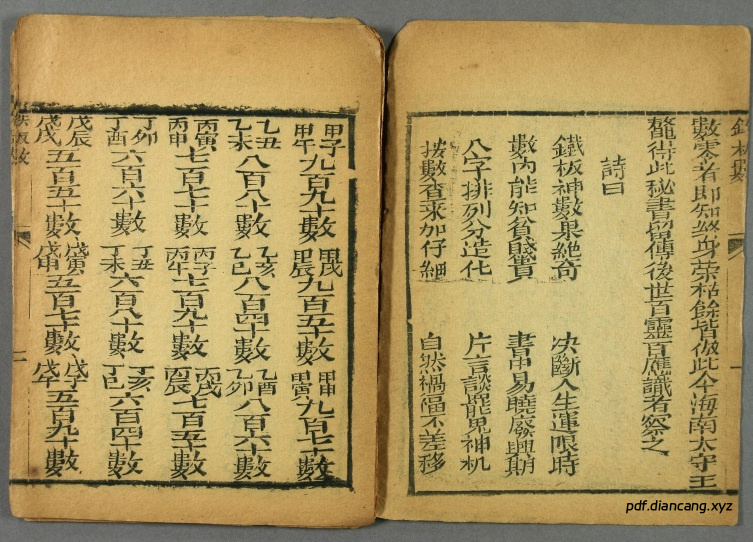 鐵板數
數零者即知終身荣枯餘皆倣此今海南太守王
鰲得此秘書留傳後世百靈百應識者察之
詩曰
鐵板神數果絶奇 决斷人生運限時
數內能知貧賤貴 書中易曉廢興期
八字排列分造化 片言談罷鬼神机
按數查來加仔細 自然禍福不差移
甲子甲午九百九十數 甲戌甲辰九百五十數 甲申甲寅九百七十數
乙丑乙未八百八十數 乙亥乙巳八百四十數 乙酉乙卯八百六十數
丙寅丙申七百七十數 丙子丙午七百九十數 丙戌丙辰七百五十數
丁卯丁酉六百六十數 丁丑丁未六百八十數 丁亥丁巳六百四十數
戊辰戊戌五百五十數 戊寅戊申五百七十數 戊子戊午五百九十數
二
pdf.diancang.xyz